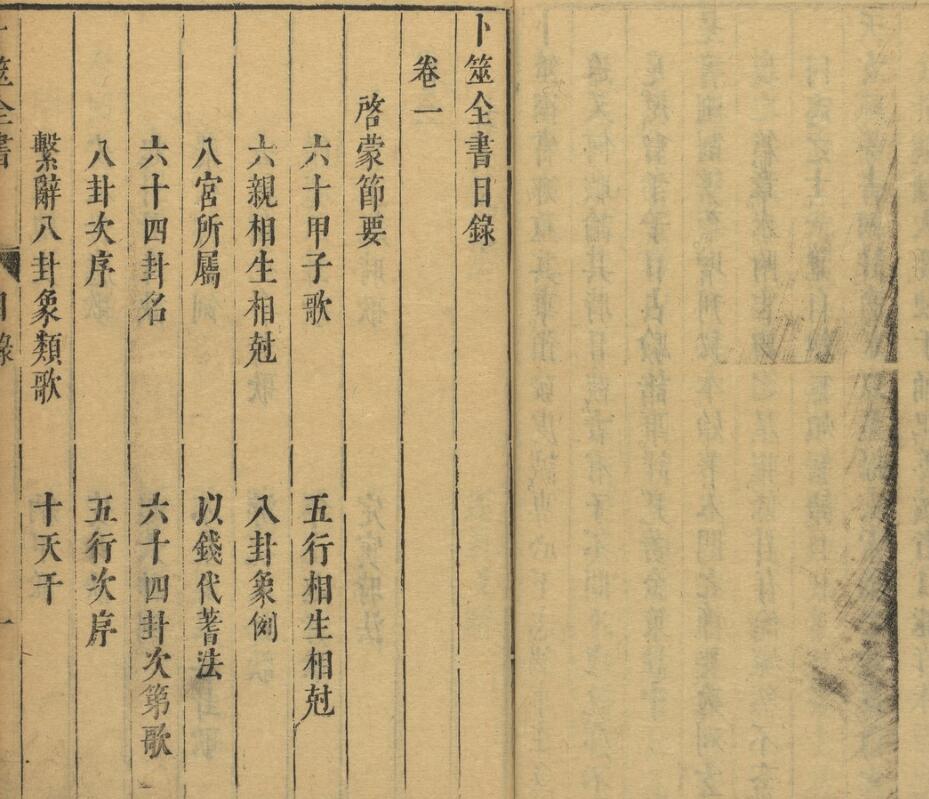 卜筮全書目錄
卷一
啓蒙節要
六十甲子歌 五行相生相尅
六親相生相尅 八卦象例
八宮所屬 以錢代蓍法
六十四卦名 六十四卦次第歌
八卦次序 五行次序
繫辭八卦象類歌 十天干
卜筮全書 目錄 一